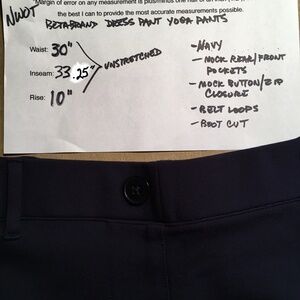 Margin of error on any measurement is plus/minus one half of an
the best I can to provide the most accurate measurements possible.
NWOT
BETABRAND DRESS PANT YOGA PANTS
Waist: 30"
Inseam: 33.25"
Rise: 10"
UNSTRETCHED
- NAVY
- MOCK REAR/FRONT
POCKETS
- MOCK BUTTON/ZIP
CLOSURE
- BELT LOOPS
- BOOT CUT